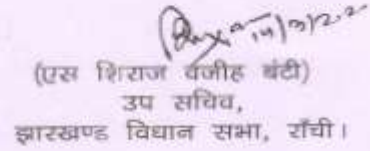 14/3/22
(एस शिराज वजीह बंटी)
उप सचिव,
झारखण्ड विधान सभा, राँची।